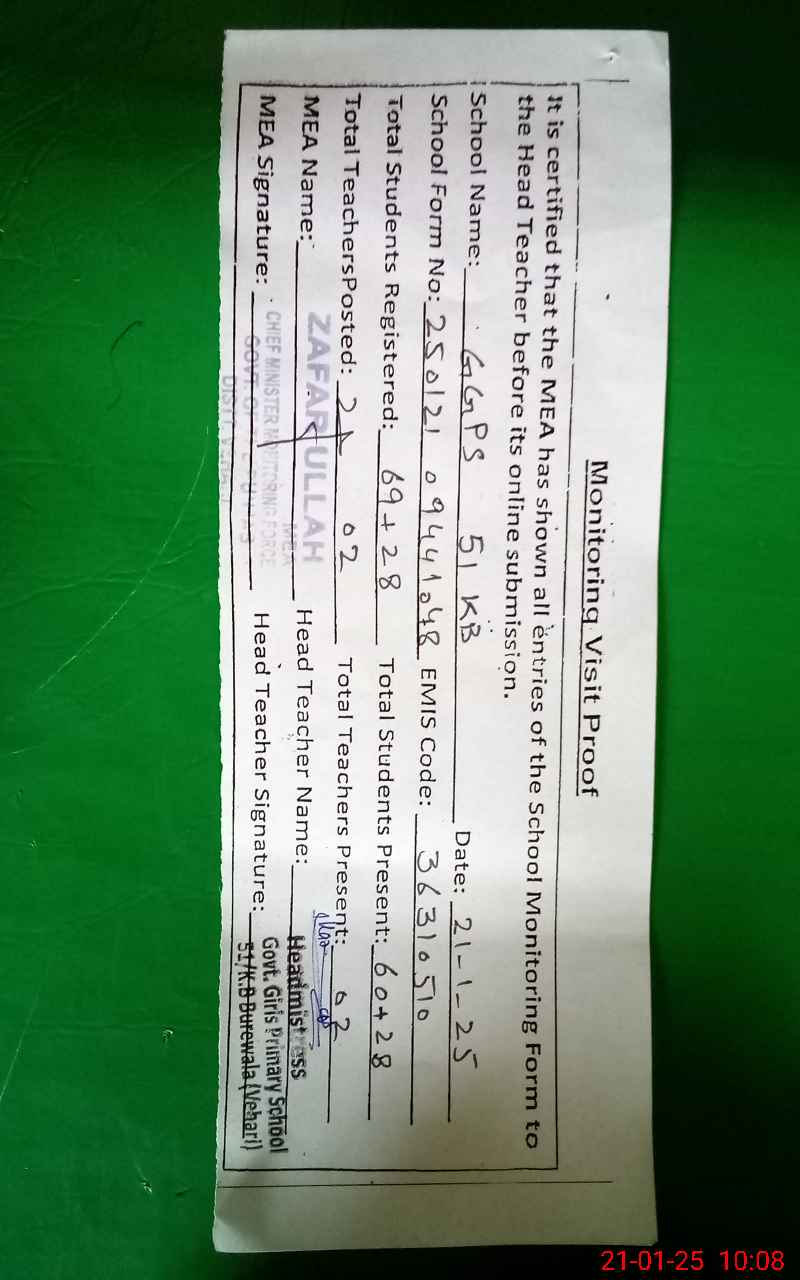 Monitoring Visit Proof
It is certified that the MEA has shown all entries of the School Monitoring Form to
the Head Teacher before its online submission.
School Name: GGPS 51 KB Date: 21-1-25
School Form No: 250121 09441048 EMIS Code: 36310510
Total Students Registered: 69+28 Total Students Present: 60+28
Total TeachersPosted: 02 Total Teachers Present: 02
MEA Name: ZAFAR ULLAH Head Teacher Name:
MEA
MEA Signature: Head Teacher Signature:
CHIEF MINISTER MONITORING FORCE
GOVT. OF THE PUNJAB
Headmistress
Govt. Girls Primary School
51/K.B Burewala (Vehari)
21-01-25 10:08